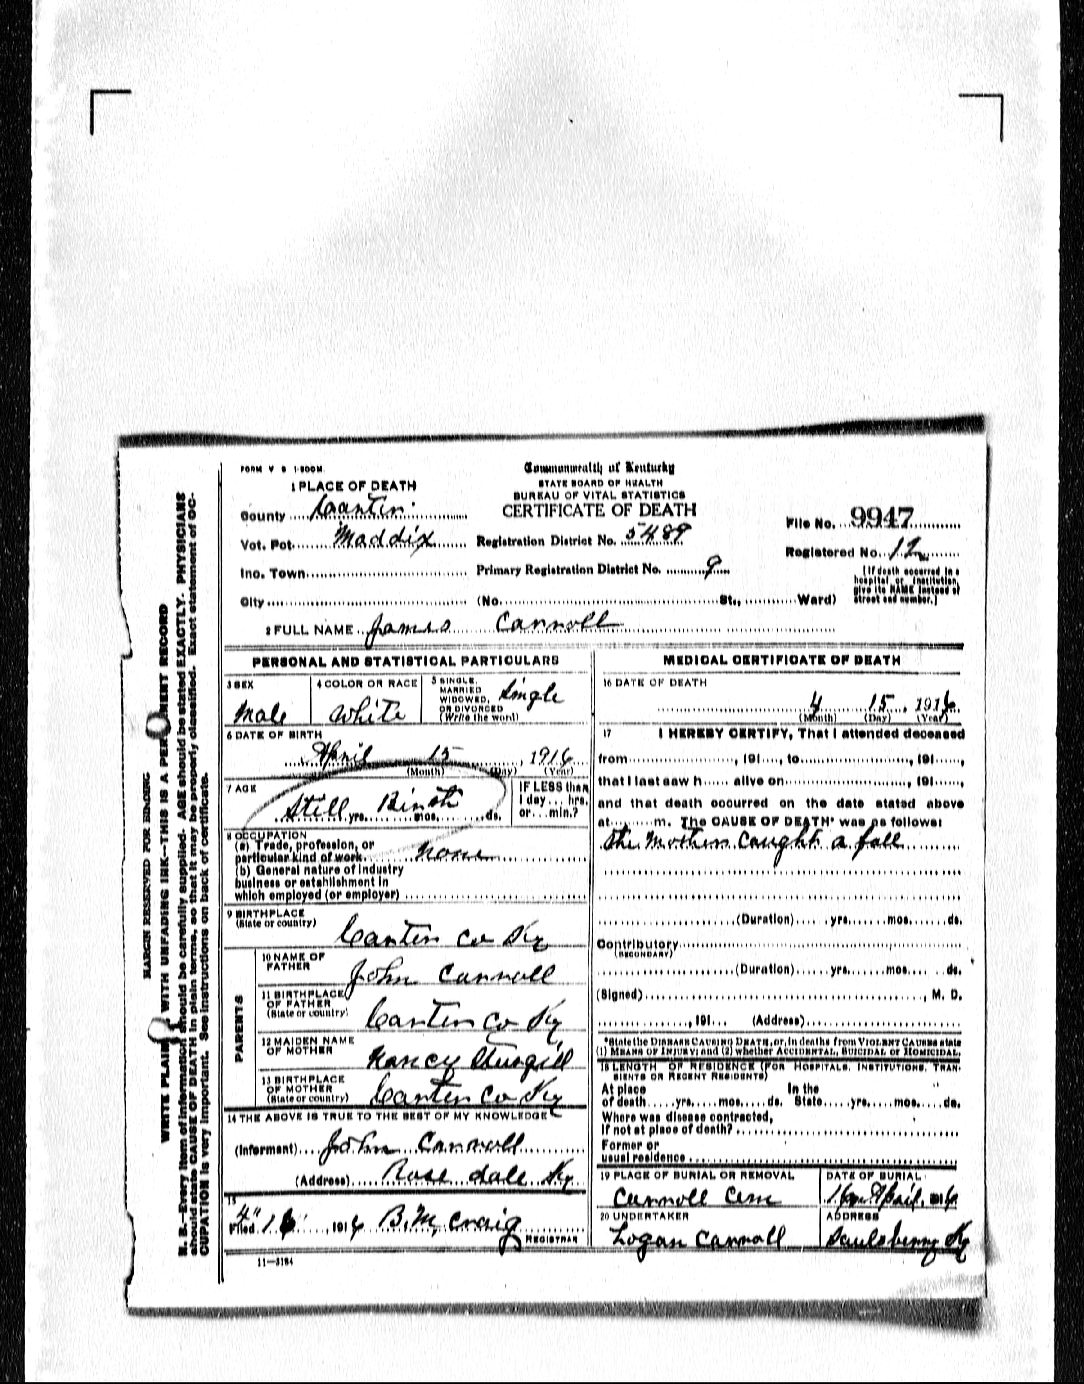 FORM V S 1-500M
Commonwealth of Kentucky
STATE BOARD OF HEALTH
BUREAU OF VITAL STATISTICS
CERTIFICATE OF DEATH
1 PLACE OF DEATH
County Carter
Vot. Pct. Maddix
Inc. Town
City
Registration District No. 5489
Primary Registration District No. 9
(No. St., Ward)
File No. 9947
Registered No. 12
[If death occurred in a
hospital or institution,
give its NAME instead of
street and number.]
2 FULL NAME James Carroll
PERSONAL AND STATISTICAL PARTICULARS
3 SEX
Male
4 COLOR OR RACE
White
5 SINGLE,
MARRIED
WIDOWED,
OR DIVORCED
(Write the word)
Single
6 DATE OF BIRTH
April 15 1916
(Month) (Day) (Year)
7 AGE
Still Birth
yrs. mos. ds.
IF LESS than
1 day... hrs.
or... min.?
8 OCCUPATION
(a) Trade, profession, or
particular kind of work. none
(b) General nature of industry
business or establishment in
which employed (or employer)
9 BIRTHPLACE
(State or country)
Carter Co Ky
PARENTS
10 NAME OF
FATHER
John Carroll
11 BIRTHPLACE
OF FATHER
(State or country)
Carter Co Ky
12 MAIDEN NAME
OF MOTHER
Nancy Sturgill
13 BIRTHPLACE
OF MOTHER
(State or country)
Carter Co Ky
14 THE ABOVE IS TRUE TO THE BEST OF MY KNOWLEDGE
(Informant) John Carroll
(Address) Rose dale Ky
15
Filed 4" 16 1916 B.M. Craig
REGISTRAR
11—3184
MEDICAL CERTIFICATE OF DEATH
16 DATE OF DEATH
4 15 1916
(Month) (Day) (Year)
17 I HEREBY CERTIFY, That I attended deceased
from , 191 , to , 191 ,
that I last saw h alive on , 191 ,
and that death occurred on the date stated above
at m. The CAUSE OF DEATH* was as follows:
the Mothers Caught a fall
(Duration) yrs. mos. ds.
Contributory
(SECONDARY)
(Duration) yrs. mos. ds.
(Signed) , M. D.
, 191 (Address)
*State the DISEASE CAUSING DEATH, or, in deaths from VIOLENT CAUSES state
(1) MEANS OF INJURY; and (2) whether ACCIDENTAL, SUICIDAL or HOMICIDAL.
18 LENGTH OF RESIDENCE (FOR HOSPITALS, INSTITUTIONS, TRAN-
SIENTS OR RECENT RESIDENTS)
At place In the
of death yrs. mos. ds. State yrs. mos. ds.
Where was disease contracted,
If not at place of death?
Former or
usual residence
19 PLACE OF BURIAL OR REMOVAL
Carroll Cem
DATE OF BURIAL
16 April 1916
20 UNDERTAKER
Logan Carroll
ADDRESS
Saulsberry Ky
MARGIN RESERVED FOR BINDING
WRITE PLAINLY WITH UNFADING INK—THIS IS A PERMANENT RECORD
N. B.—Every item of information should be carefully supplied. AGE should be stated EXACTLY. PHYSICIANS
should state CAUSE OF DEATH in plain terms, so that it may be properly classified. Exact statement of OC-
CUPATION is very important. See instructions on back of certificate.